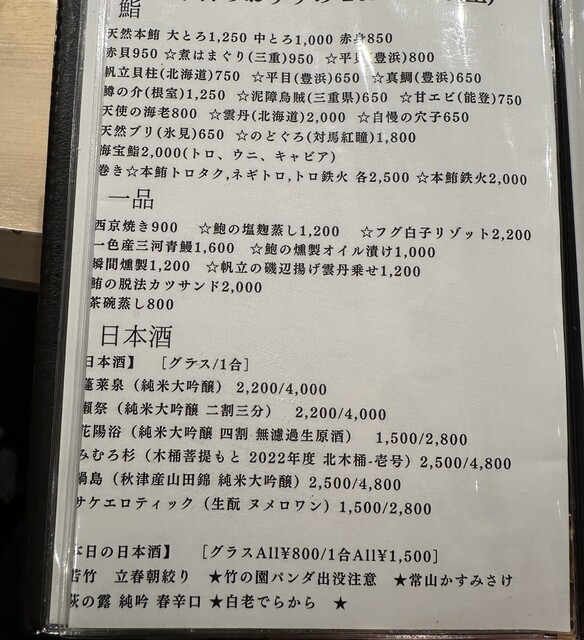 鮨
天然本鮪 大とろ1,250 中とろ1,000 赤身850
赤貝950 ☆煮はまぐり(三重)950 ☆平貝(豊浜)800
帆立貝柱(北海道)750 ☆平目(豊浜)650 ☆真鯛(豊浜)650
鱒の介(根室)1,250 ☆泥障烏賊(三重県)650 ☆甘エビ(能登)750
天使の海老800 ☆雲丹(北海道)2,000 ☆自慢の穴子650
天然ブリ(氷見)650 ☆のどぐろ(対馬紅瞳)1,800
海宝鮨2,000(トロ、ウニ、キャビア)
巻き☆本鮪トロタク,ネギトロ,トロ鉄火 各2,500 ☆本鮪鉄火2,000
一品
西京焼き900 ☆鮑の塩麹蒸し1,200 ☆フグ白子リゾット2,200
一色産三河青鰻1,600 ☆鮑の燻製オイル漬け1,000
瞬間燻製1,200 ☆帆立の磯辺揚げ雲丹乗せ1,200
鮪の脱法カツサンド2,000
茶碗蒸し800
日本酒
日本酒】 [グラス/1合]
蓬莱泉(純米大吟醸) 2,200/4,000
獺祭(純米大吟醸 二割三分) 2,200/4,000
花陽浴(純米大吟醸 四割 無濾過生原酒) 1,500/2,800
みむろ杉(木桶菩提もと 2022年度 北木桶-壱号) 2,500/4,800
鍋島(秋津産山田錦 純米大吟醸) 2,500/4,800
サケエロティック(生酛 ヌメロワン) 1,500/2,800
本日の日本酒】 [グラスAll¥800/1合All¥1,500]
若竹 立春朝絞り ★竹の園パンダ出没注意 ★常山かすみさけ
萩の露 純吟 春辛口 ★白老でらから ★